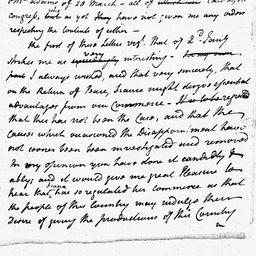 Mr. Adams of 20 March - all of
Congress, but as yet they have not given me any orders
respecting the contents of either -
the first of these Letters vizt. that of 2d. Jany
Strikes me as very interesting -
I always wished, and that very sincerely, that
on the Return of Peace, France might derive essential
advantages from our Commerce - It is to be regretted
that this has not been the Case, and that the
Causes which occasioned the Disappointment have
not sooner been been investigated and removed
In my opinion you have done it candidly &
ably; and it would give me great Pleasure to
hear that France has so regulated her commerce as that
the people of this Country may indulge their
Desire of giving the productions of this Country
in